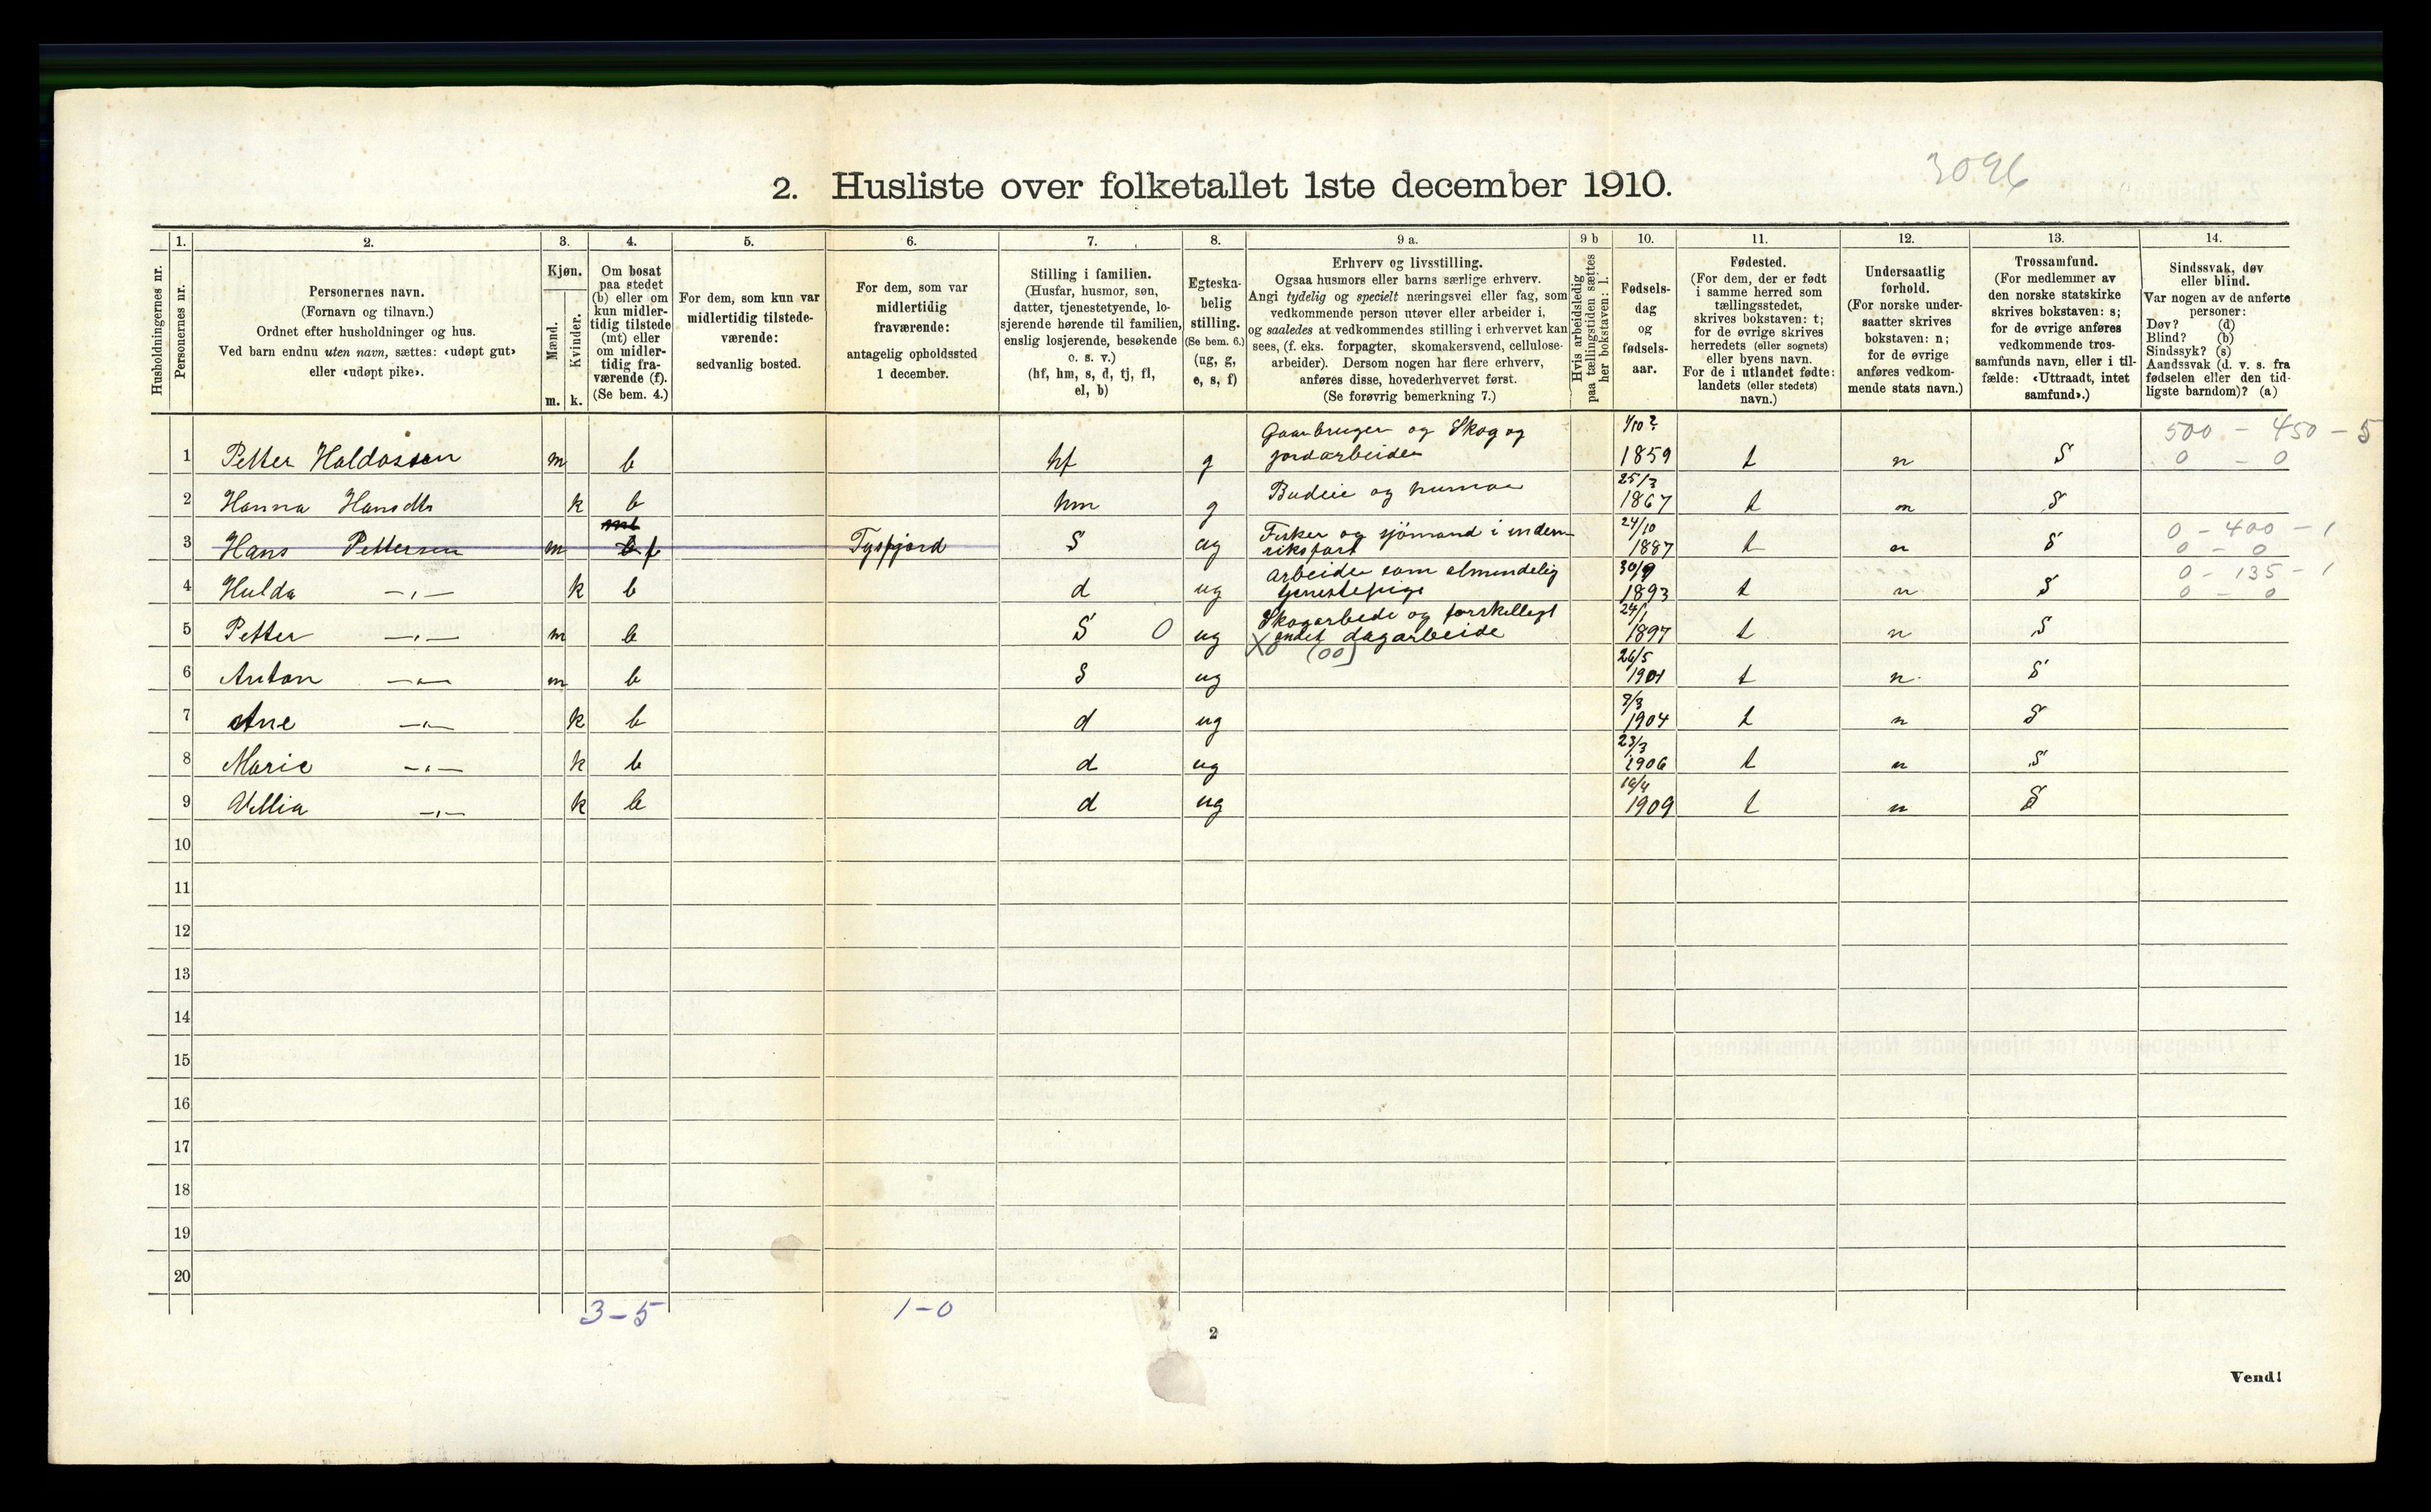 3096
2. Husliste over folketallet 1ste december 1910.
1. 2. 3. 4. 5. 6. 7. 8. 9 a. 9 b 10. 11. 12. 13. 14.
Husholdningernes nr.
Personernes nr.
Personernes navn.
(Fornavn og tilnavn.)
Ordnet efter husholdninger og hus.
Ved barn endnu uten navn, sættes: «udøpt gut»
eller «udøpt pike».
Kjøn.
Mænd.
Kvinder.
m. k.
Om bosat
paa stedet
(b) eller om
kun midler-
tidig tilstede
(mt) eller
om midler-
tidig fra-
værende (f).
(Se bem. 4.)
For dem, som kun var
midlertidig tilstede-
værende:
sedvanlig bosted.
For dem, som var
midlertidig
fraværende:
antagelig opholdssted
1 december.
Stilling i familien.
(Husfar, husmor, søn,
datter, tjenestetyende, lo-
sjerende hørende til familien,
enslig losjerende, besøkende
o. s. v.)
(hf, hm, s, d, tj, fl,
el, b)
Egteska-
belig
stilling.
(Se bem. 6.)
(ug, g,
e, s, f)
Erhverv og livsstilling.
Ogsaa husmors eller barns særlige erhverv.
Angi tydelig og specielt næringsvei eller fag, som
vedkommende person utøver eller arbeider i,
og saaledes at vedkommendes stilling i erhvervet kan
sees, (f. eks. forpagter, skomakersvend, cellulose-
arbeider). Dersom nogen har flere erhverv,
anføres disse, hovederhvervet først.
(Se forøvrig bemerkning 7.)
Hvis arbeidsledig
paa tællingstiden sættes
her bokstaven: l.
Fødsels-
dag
og
fødsels-
aar.
Fødested.
(For dem, der er født
i samme herred som
tællingsstedet,
skrives bokstaven: t;
for de øvrige skrives
herredets (eller sognets)
eller byens navn.
For de i utlandet fødte:
landets (eller stedets)
navn.)
Undersaatlig
forhold.
(For norske under-
saatter skrives
bokstaven: n;
for de øvrige
anføres vedkom-
mende stats navn.)
Trossamfund.
(For medlemmer av
den norske statskirke
skrives bokstaven: s;
for de øvrige anføres
vedkommende tros-
samfunds navn, eller i til-
fælde: «Uttraadt, intet
samfund».)
Sindssvak, døv
eller blind.
Var nogen av de anførte
personer:
Døv? (d)
Blind? (b)
Sindssyk? (s)
Aandssvak (d. v. s. fra
fødselen eller den tid-
ligste barndom)? (a)
Gaarbruger og Skog og 1/10? 500 - 450 - 5
1 Petter Haldossen m b hf g jordarbeider 1859 t n S 0 - 0
25/3
2 Hanna Hansdtr k b hm g Budeie og 1867 t n S
mt 24/10 0 - 400 - 1
3 Hans Pettersen m b f Tysfjord S ug Fisker og sjömand i inden-
riksfart 1887 t n S 0 - 0
30/9 0 - 135 - 1
4 Hulda -"- k b d ug arbeider som almindelig
tjenestepige 1893 t n S 0 - 0
24/1
5 Petter -"- m b S 0 ug Skogarbeide og forskelligt
X andet dagarbeide 1897 t n S
(00)
26/5
6 Anton -"- m b S ug 1901 t n S
8/3
7 Ane -"- k b d ug 1904 t n S
23/3
8 Marie -"- k b d ug 1906 t n S
16/4
9 -"- k b d ug 1909 t n S
10
11
12
13
14
15
16
17
18
19
20
3-5 1-0
2
Vend!